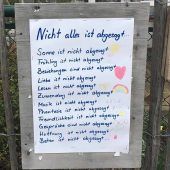 Nicht alles ist abgesagt...
Sonne ist nicht abgesagt
Frühling ist nicht abgesagt
Beziehungen sind nicht abgesagt
Liebe ist nicht abgesagt
Lesen ist nicht abgesagt
Zuwendung ist nicht abgesagt
Musik ist nicht abgesagt
Phantasie ist nicht abgesagt
Freundlichkeit ist nicht abgesagt
Gespräche sind nicht abgesagt
Hoffnung ist nicht abgesagt
Beten ist nicht abgesagt...